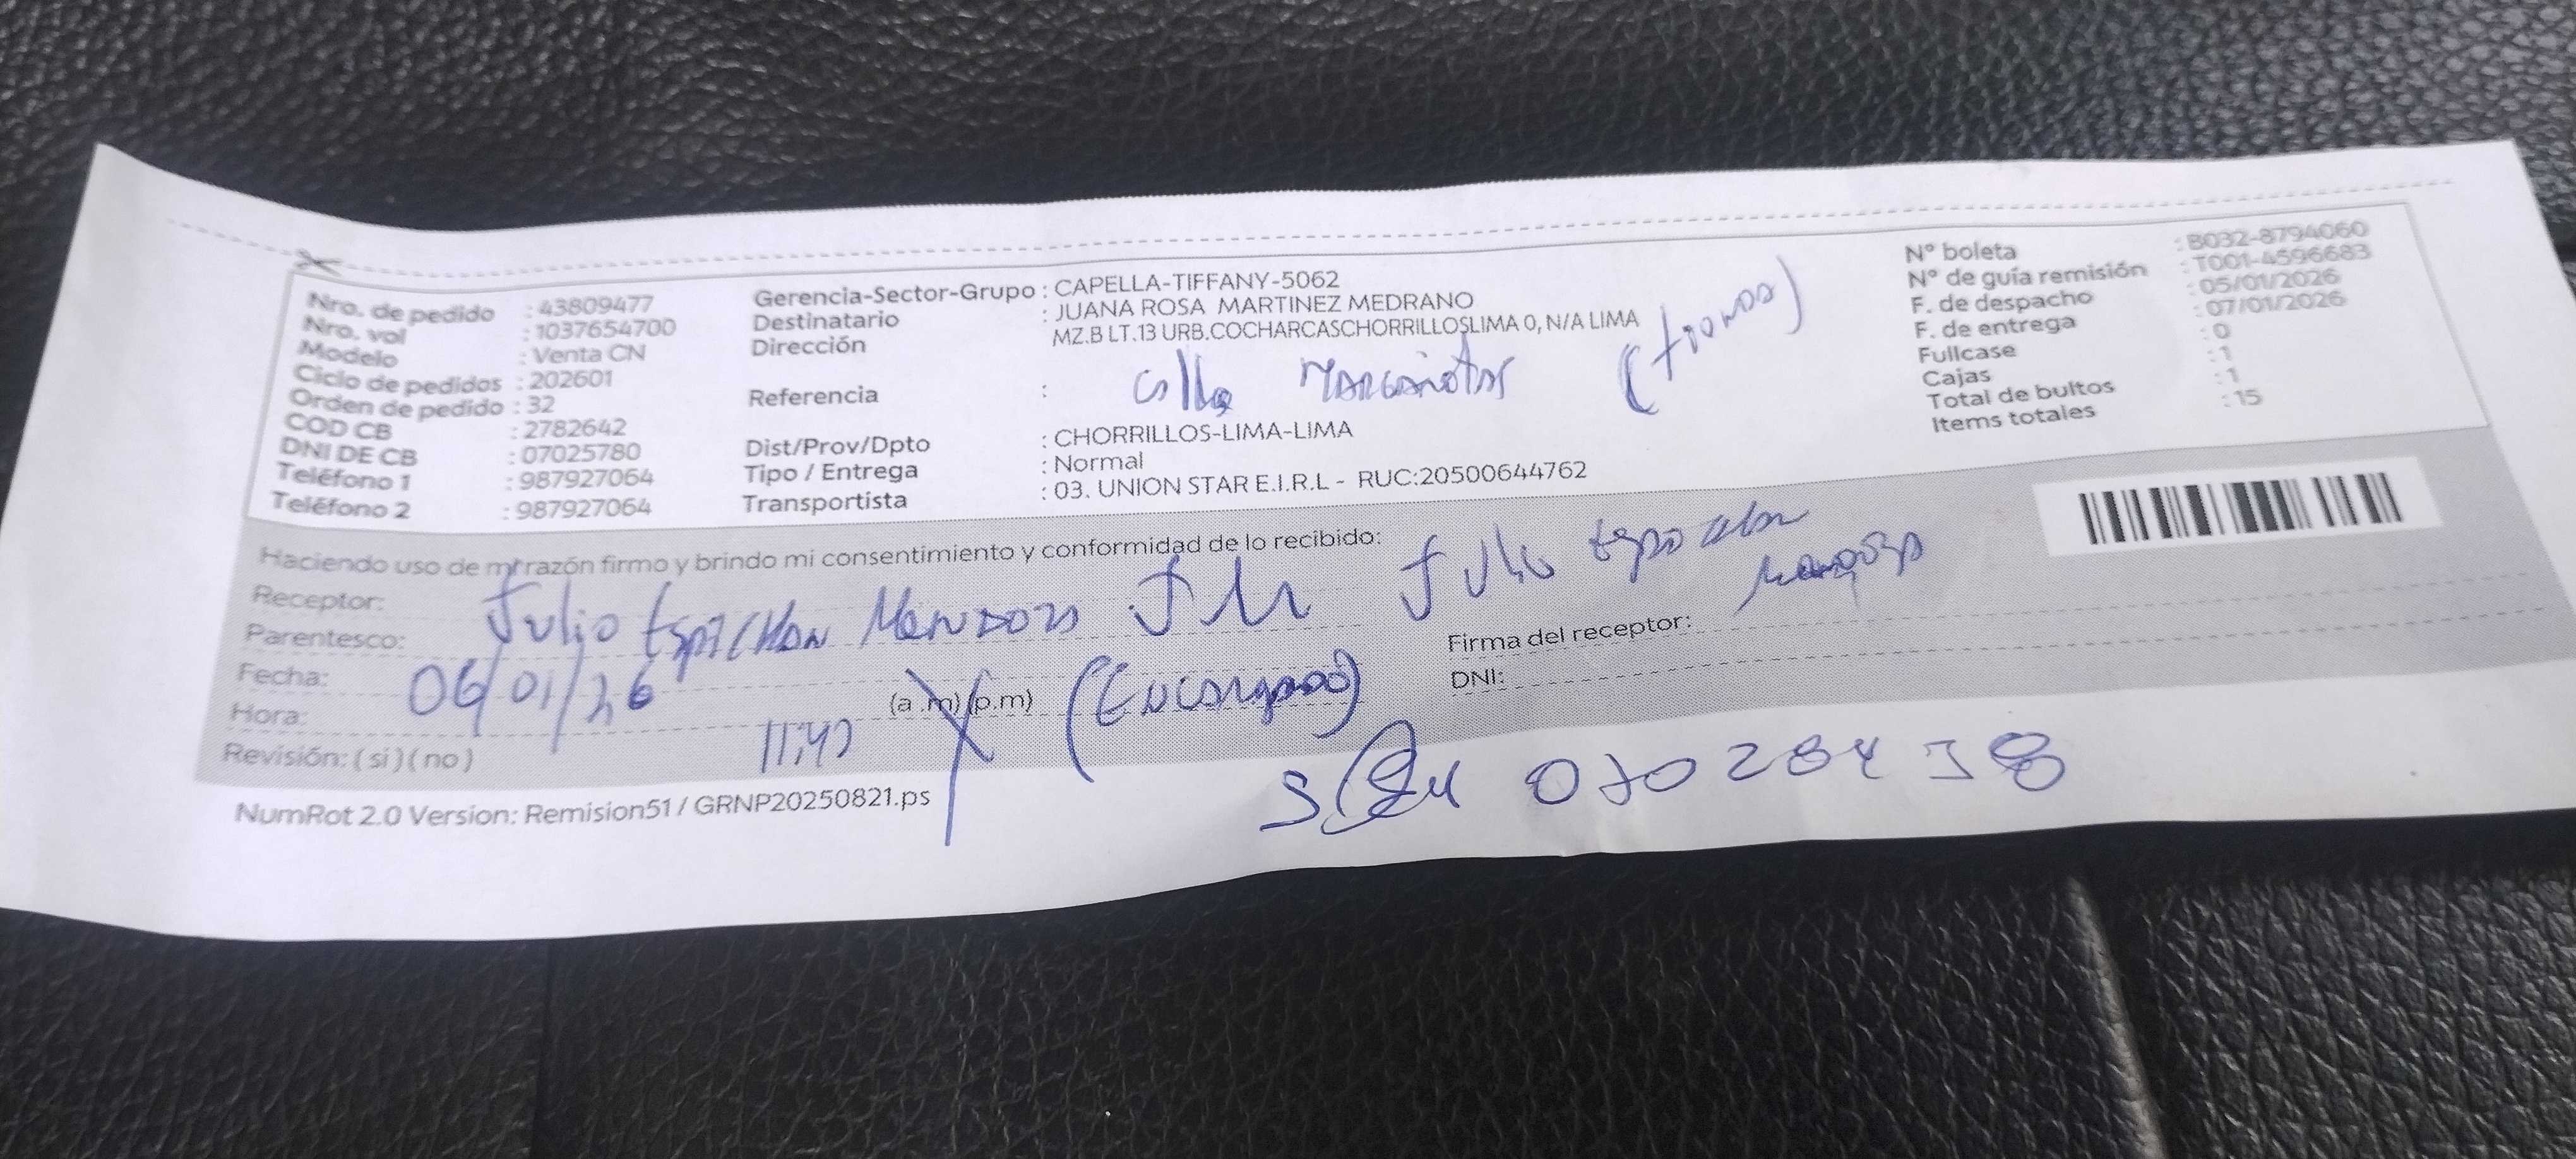 Nro. de pedido : 43809477
Nro. vol : 1037654700
Modelo : Venta CN
Ciclo de pedidos : 202601
Orden de pedido : 32
COD CB : 2782642
DNI DE CB : 07025780
Teléfono 1 : 987927064
Teléfono 2 : 987927064
Gerencia-Sector-Grupo : CAPELLA-TIFFANY-5062
Destinatario : JUANA ROSA MARTINEZ MEDRANO
Dirección MZ.B LT.13 URB.COCHARCASCHORRILLOSLIMA 0, N/A LIMA
Referencia : Calle Margaritas
Dist/Prov/Dpto : CHORRILLOS-LIMA-LIMA
Tipo / Entrega : Normal
Transportista : 03. UNION STAR E.I.R.L - RUC:20500644762
N° boleta : B032-8794060
N° de guía remisión : T001-4596683
F. de despacho : 05/01/2026
F. de entrega : 07/01/2026
Fullcase : 0
Cajas : 1
Total de bultos : 1
Items totales : 15
Haciendo uso de mi razón firmo y brindo mi consentimiento y conformidad de lo recibido:
Receptor: Julio Espichan Mendoza
Parentesco:
Fecha: 06/01/26
Hora: (a .m) (p.m) (Encargado)
Revisión: ( si ) ( no )
Julio Espichan
Mendoza
Firma del receptor:
DNI:
NumRot 2.0 Version: Remision51 / GRNP20250821.ps